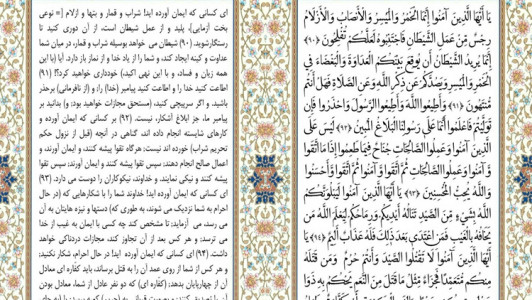 يَا أَيُّهَا الَّذِينَ آمَنُوا إِنَّمَا الْخَمْرُ وَالْمَيْسِرُ وَالْأَنْصَابُ وَالْأَزْلَامُ
رِجْسٌ مِنْ عَمَلِ الشَّيْطَانِ فَاجْتَنِبُوهُ لَعَلَّكُمْ تُفْلِحُونَ ﴿٩٠﴾
إِنَّمَا يُرِيدُ الشَّيْطَانُ أَنْ يُوقِعَ بَيْنَكُمُ الْعَدَاوَةَ وَالْبَغْضَاءَ فِي
الْخَمْرِ وَالْمَيْسِرِ وَيَصُدَّكُمْ عَنْ ذِكْرِ اللَّهِ وَعَنِ الصَّلَاةِ فَهَلْ أَنْتُمْ
مُنْتَهُونَ ﴿٩١﴾ وَأَطِيعُوا اللَّهَ وَأَطِيعُوا الرَّسُولَ وَاحْذَرُوا فَإِنْ
تَوَلَّيْتُمْ فَاعْلَمُوا أَنَّمَا عَلَى رَسُولِنَا الْبَلَاغُ الْمُبِينُ ﴿٩٢﴾ لَيْسَ عَلَى
الَّذِينَ آمَنُوا وَعَمِلُوا الصَّالِحَاتِ جُنَاحٌ فِيمَا طَعِمُوا إِذَا مَا اتَّقَوْا
وَآمَنُوا وَعَمِلُوا الصَّالِحَاتِ ثُمَّ اتَّقَوْا وَآمَنُوا ثُمَّ اتَّقَوْا وَأَحْسَنُوا
وَاللَّهُ يُحِبُّ الْمُحْسِنِينَ ﴿٩٣﴾ يَا أَيُّهَا الَّذِينَ آمَنُوا لَيَبْلُوَنَّكُمُ
اللَّهُ بِشَيْءٍ مِنَ الصَّيْدِ تَنَالُهُ أَيْدِيكُمْ وَرِمَاحُكُمْ لِيَعْلَمَ اللَّهُ مَنْ
يَخَافُهُ بِالْغَيْبِ فَمَنِ اعْتَدَى بَعْدَ ذَلِكَ فَلَهُ عَذَابٌ أَلِيمٌ ﴿٩٤﴾ يَا
أَيُّهَا الَّذِينَ آمَنُوا لَا تَقْتُلُوا الصَّيْدَ وَأَنْتُمْ حُرُمٌ وَمَنْ قَتَلَهُ
مِنْكُمْ مُتَعَمِّدًا فَجَزَاءٌ مِثْلُ مَا قَتَلَ مِنَ النَّعَمِ يَحْكُمُ بِهِ ذَوَا
ای کسانی که ایمان آورده اید! شراب و قمار و بتها و ازلام [= نوعی
بخت آزمایی]، پلید و از عمل شیطان است، از آن دوری کنید تا
رستگارشوید. (۹۰) شیطان می خواهد بوسیله شراب و قمار، در میان شما
عداوت و کینه ایجاد کند، و شما را از یاد خدا و از نماز باز دارد. آیا (با این
همه زیان و فساد، و با این نهی اکید،) خودداری خواهید کرد؟! (۹۱)
اطاعت کنید خدا را و اطاعت کنید پیامبر (خدا) را؛ و (از نافرمانی) برحذر
باشید. و اگر سرپیچی کنید، (مستحق مجازات خواهید بود؛ و) بدانید بر
پیامبر ما، جز ابلاغ آشکار، نیست. (۹۲) بر کسانی که ایمان آورده و
کارهای شایسته انجام داده اند، گناهی در آنچه (قبل از نزول حکم
تحریم شراب) خورده اند نیست: هرگاه تقوا پیشه کنند، و ایمان آورند، و
اعمال صالح انجام دهند: سپس تقوا پیشه کنند و ایمان آورند: سپس تقوا
پیشه کنند و نیکی نمایند. و خداوند، نیکوکاران را دوست می دارد. (۹۳)
ای کسانی که ایمان آورده اید! خداوند شما را با شکارهایی که (در حال
احرام به شما نزدیک می شوند، به طوری که) دستها و نیزه هایتان به آن
می رسد، می آزماید: تا مشخص کند چه کسی با ایمان به غیب از خدا
می ترسد: و هر کس بعد از آن تجاوز کند، مجازات دردناکی خواهد
داشت. (۹۴) ای کسانی که ایمان آورده اید! در حال احرام، شکار نکنید:
و هر کس از شما از روی عمد آن را به قتل برساند، باید کفّاره ای معادل
آن از چهارپایان بدهد: (کفّاره ای) که دو نفر عادل از شما، معادل بودن